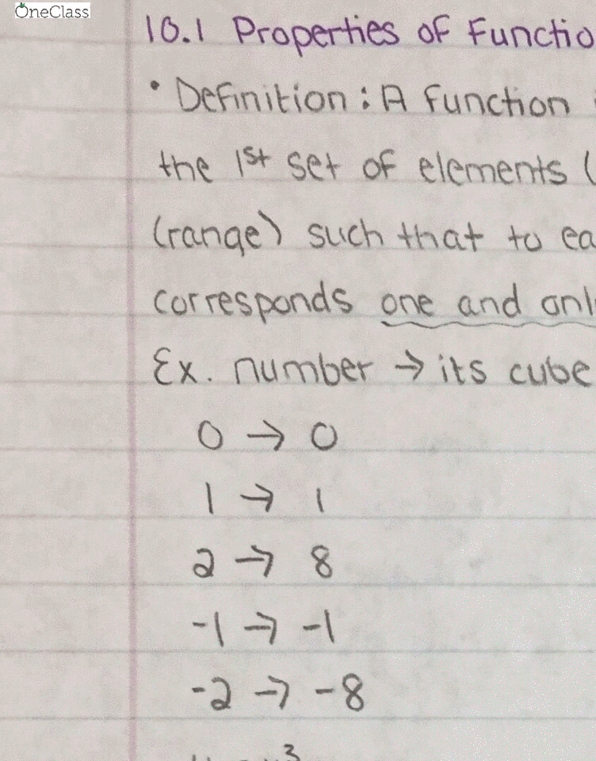 OneClass
10.1 Properties of Functio
• Definition: A function
the 1st set of elements (
(range) such that to ea
corresponds one and onl
Ex. number → its cube
0 → 0
1 → 1
2 → 8
-1 → -1
-2 → -8
3